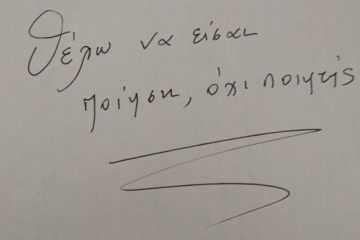 Θέλω να είσαι
ποίηση, όχι ποιητής